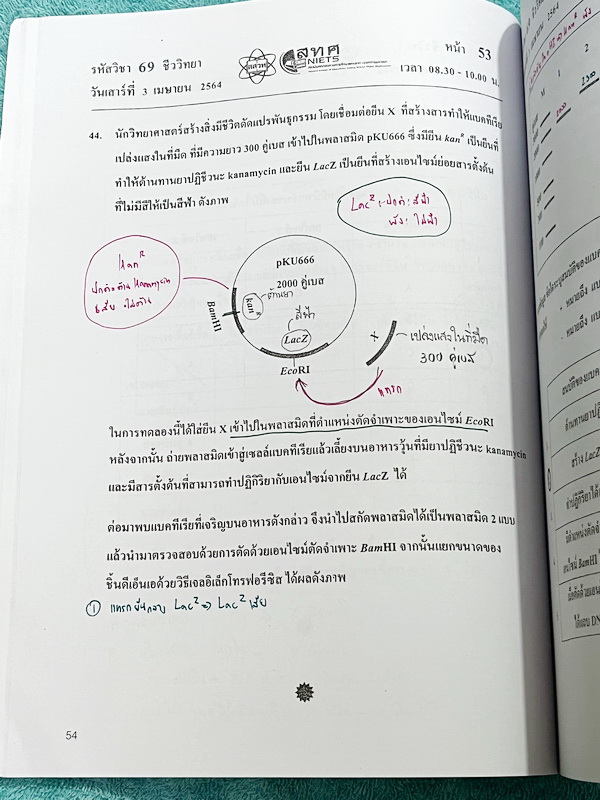 รหัสวิชา 69 ชีววิทยา
วันเสาร์ที่ 3 เมษายน 2564
สทศ
NIETS
หน้า 53
เวลา 08.30 - 10.00 น.
44. นักวิทยาศาสตร์สร้างสิ่งมีชีวิตดัดแปรพันธุกรรม โดยเชื่อมต่อยีน X ที่สร้างสารทำให้แบคทีเรีย
เปล่งแสงในที่มืด ที่มีความยาว 300 คู่เบส เข้าไปในพลาสมิด pKU666 ซึ่งมียีน kanᴿ เป็นยีนที่
ทำให้ต้านทานยาปฏิชีวนะ kanamycin และยีน LacZ เป็นยีนที่สร้างเอนไซม์ย่อยสารตั้งต้น
ที่ไม่มีสีให้เป็นสีฟ้า ดังภาพ
LacZ : ปกติ : สีฟ้า
พัง : ไม่ฟ้า
Kanᴿ
ปกติต้าน Kanamycin
เสีย ไม่ต้าน
pKU666
2000 คู่เบส
kanᴿ
ต้านยา
BamHI
สีฟ้า
LacZ
EcoRI
X
เปล่งแสงในที่มืด
300 คู่เบส
แทรก
ในการทดลองนี้ได้ใส่ยีน X เข้าไปในพลาสมิดที่ตำแหน่งตัดจำเพาะของเอนไซม์ EcoRI
หลังจากนั้น ถ่ายพลาสมิดเข้าสู่เซลล์แบคทีเรียแล้วเลี้ยงบนอาหารวุ้นที่มียาปฏิชีวนะ kanamycin
และมีสารตั้งต้นที่สามารถทำปฏิกิริยากับเอนไซม์จากยีน LacZ ได้
ต่อมาพบแบคทีเรียที่เจริญบนอาหารดังกล่าว จึงนำไปสกัดพลาสมิดได้เป็นพลาสมิด 2 แบบ
แล้วนำมาตรวจสอบด้วยการตัดด้วยเอนไซม์ตัดจำเพาะ BamHI จากนั้นแยกขนาดของ
ชิ้นดีเอ็นเอด้วยวิธีเจลอิเล็กโทรฟอรีซิส ได้ผลดังภาพ
① แทรกยีนกลาง LacZ => LacZ เสีย
54